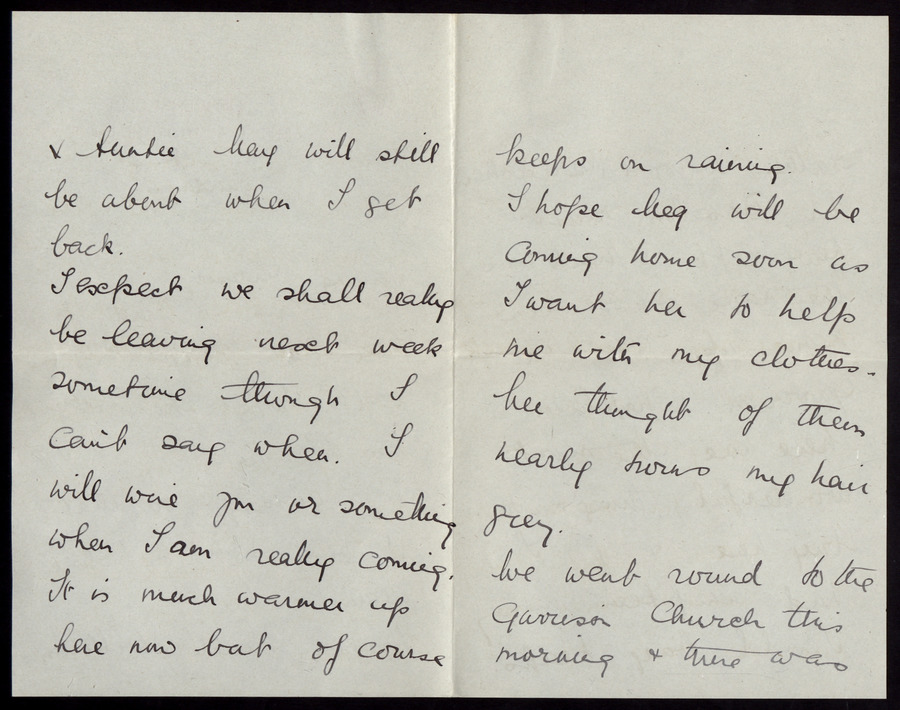 & Auntie May will still
be about when I get
back.
I expect we shall really
be leaving next week
sometime though I
can't say when. I
will wire you or something
when I am really coming.
It is much warmer up
here now but of course
keeps on raining.
I hope Meg will be
coming home soon as
I want her to help
me with my clothes -
the thought of them
nearly turns my hair
grey.
We went round to the
Garrison Church this
morning & there was